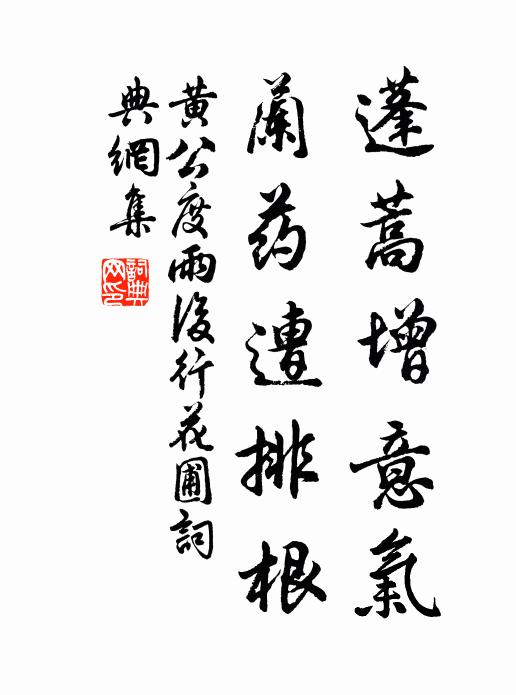 蓬蒿增意氣
蘭药遭排根
黄公度雨後行花圃詞
典網集
詞典
网印